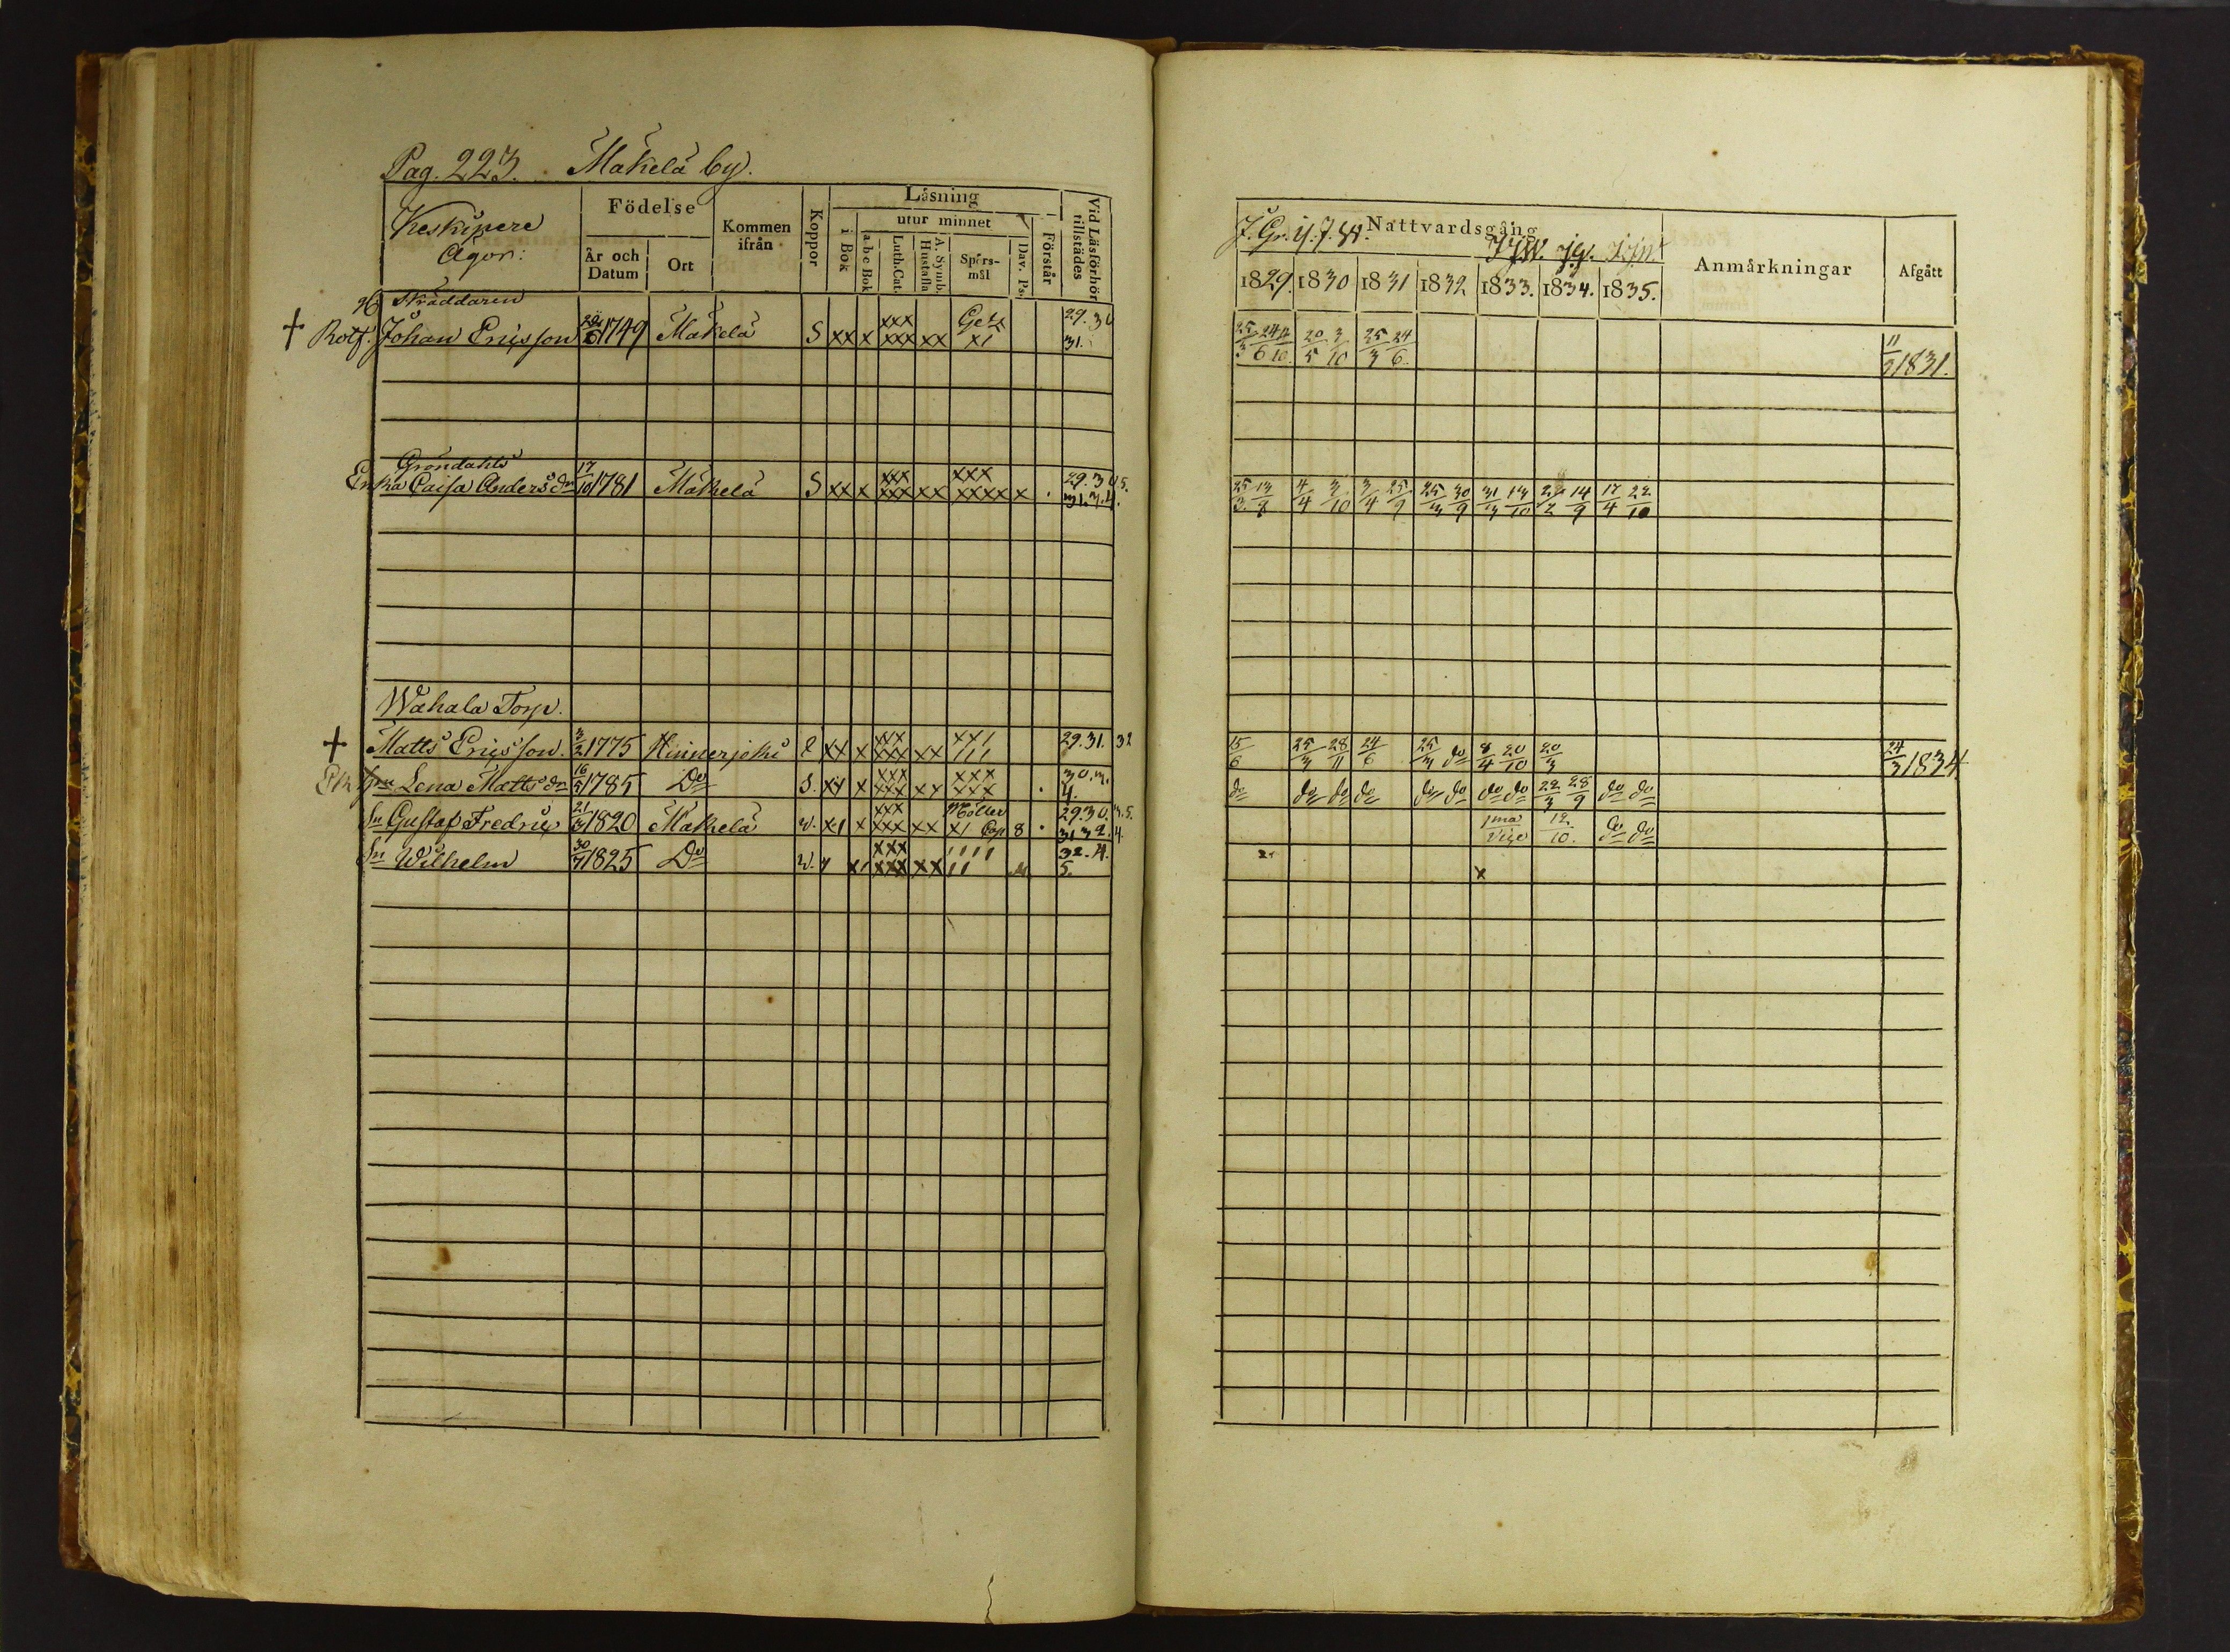 Pag. 223. Mäkelä by.
Keskipere
Ägor:
Födelse
År och Datum
Ort
Kommen ifrån
Koppor
Läsning
i Bok
utur minnet
a b c Bok
Luth. Cat.
A. Symb. Hustafla
Spörs-mål
Dav. Ps.
Förstår
Vid Läsförhör tillstädes
Nattvardsgång
1829. 1830 1831 1832 1833. 1834. 1835.
Anmärkningar
Afgått
Skräddaren
† Rotf. Johan Ericsson 1749 Mäkelä S xx x xxx xxx xx x1 29. 30 31.
25/3 24/6 10. 20/5 3/10 25/3 24/6. 11/3 1831.
Gröndahls
Enka Caisa Andersdr 17/10 1781 Mäkelä S xx x xxx xxx xx xxx xxxx x 29. 30 31. 3. 4. 5.
25/3 4/4 3/10 3/4 25/9 25/3 30/9 31/3 13/10 14/9 17/4 22/10
Wahala Torp.
† Matts Ericsson. 3/2 1775 Hinnerjoki xx x xxx xxx xx xx1 111 29. 31. 32
15/6 25/3 28/11 24/6 25/3 do 8/4 20/10 20/3 24/3 1834
Lena Mattsdr 16/5 1785 Do S. xx x xxx xxx xx xxx xxx 30. 3. 4.
do do do do do do do do 22/3 28/9 do do
Sn Gustaf Fredric 21/3 1820 Mäkelä w. x1 x xxx xxx xx x1 8 29. 30. 3. 5. 31 32. 4.
1ma vice 12/10. do do
Sn Wilhelm 30/7 1825 Do w. xxx xxx xx 1111 11 32. 4. 5.
x